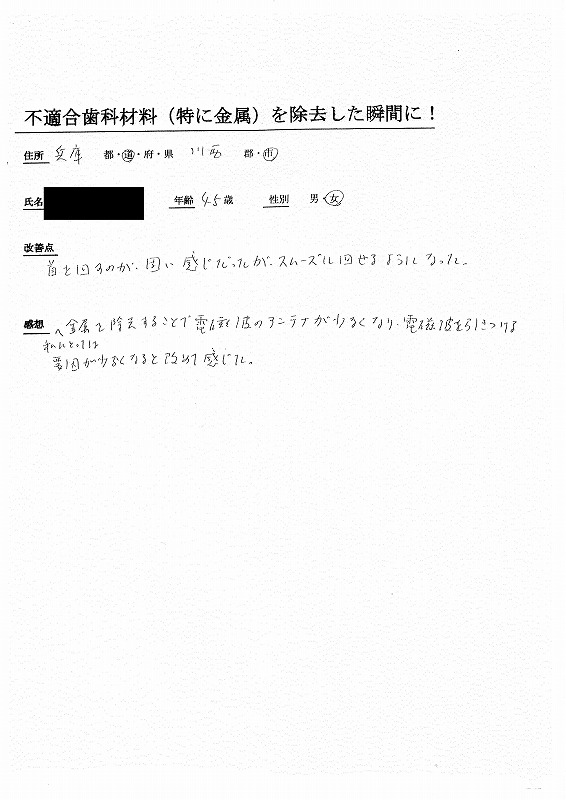 不適合歯科材料（特に金属）を除去した瞬間に！
住所 兵庫 都・道・府・県 川西 郡・市
氏名 年齢 45歳 性別 男・女
改善点
首を回すのが、固い感じだったが、スムーズに回せるようになった。
感想 金属を除去することで電磁波のアンテナが少なくなり、電磁波を引きつける
私にとっては
要因が少なくなると改めて感じた。